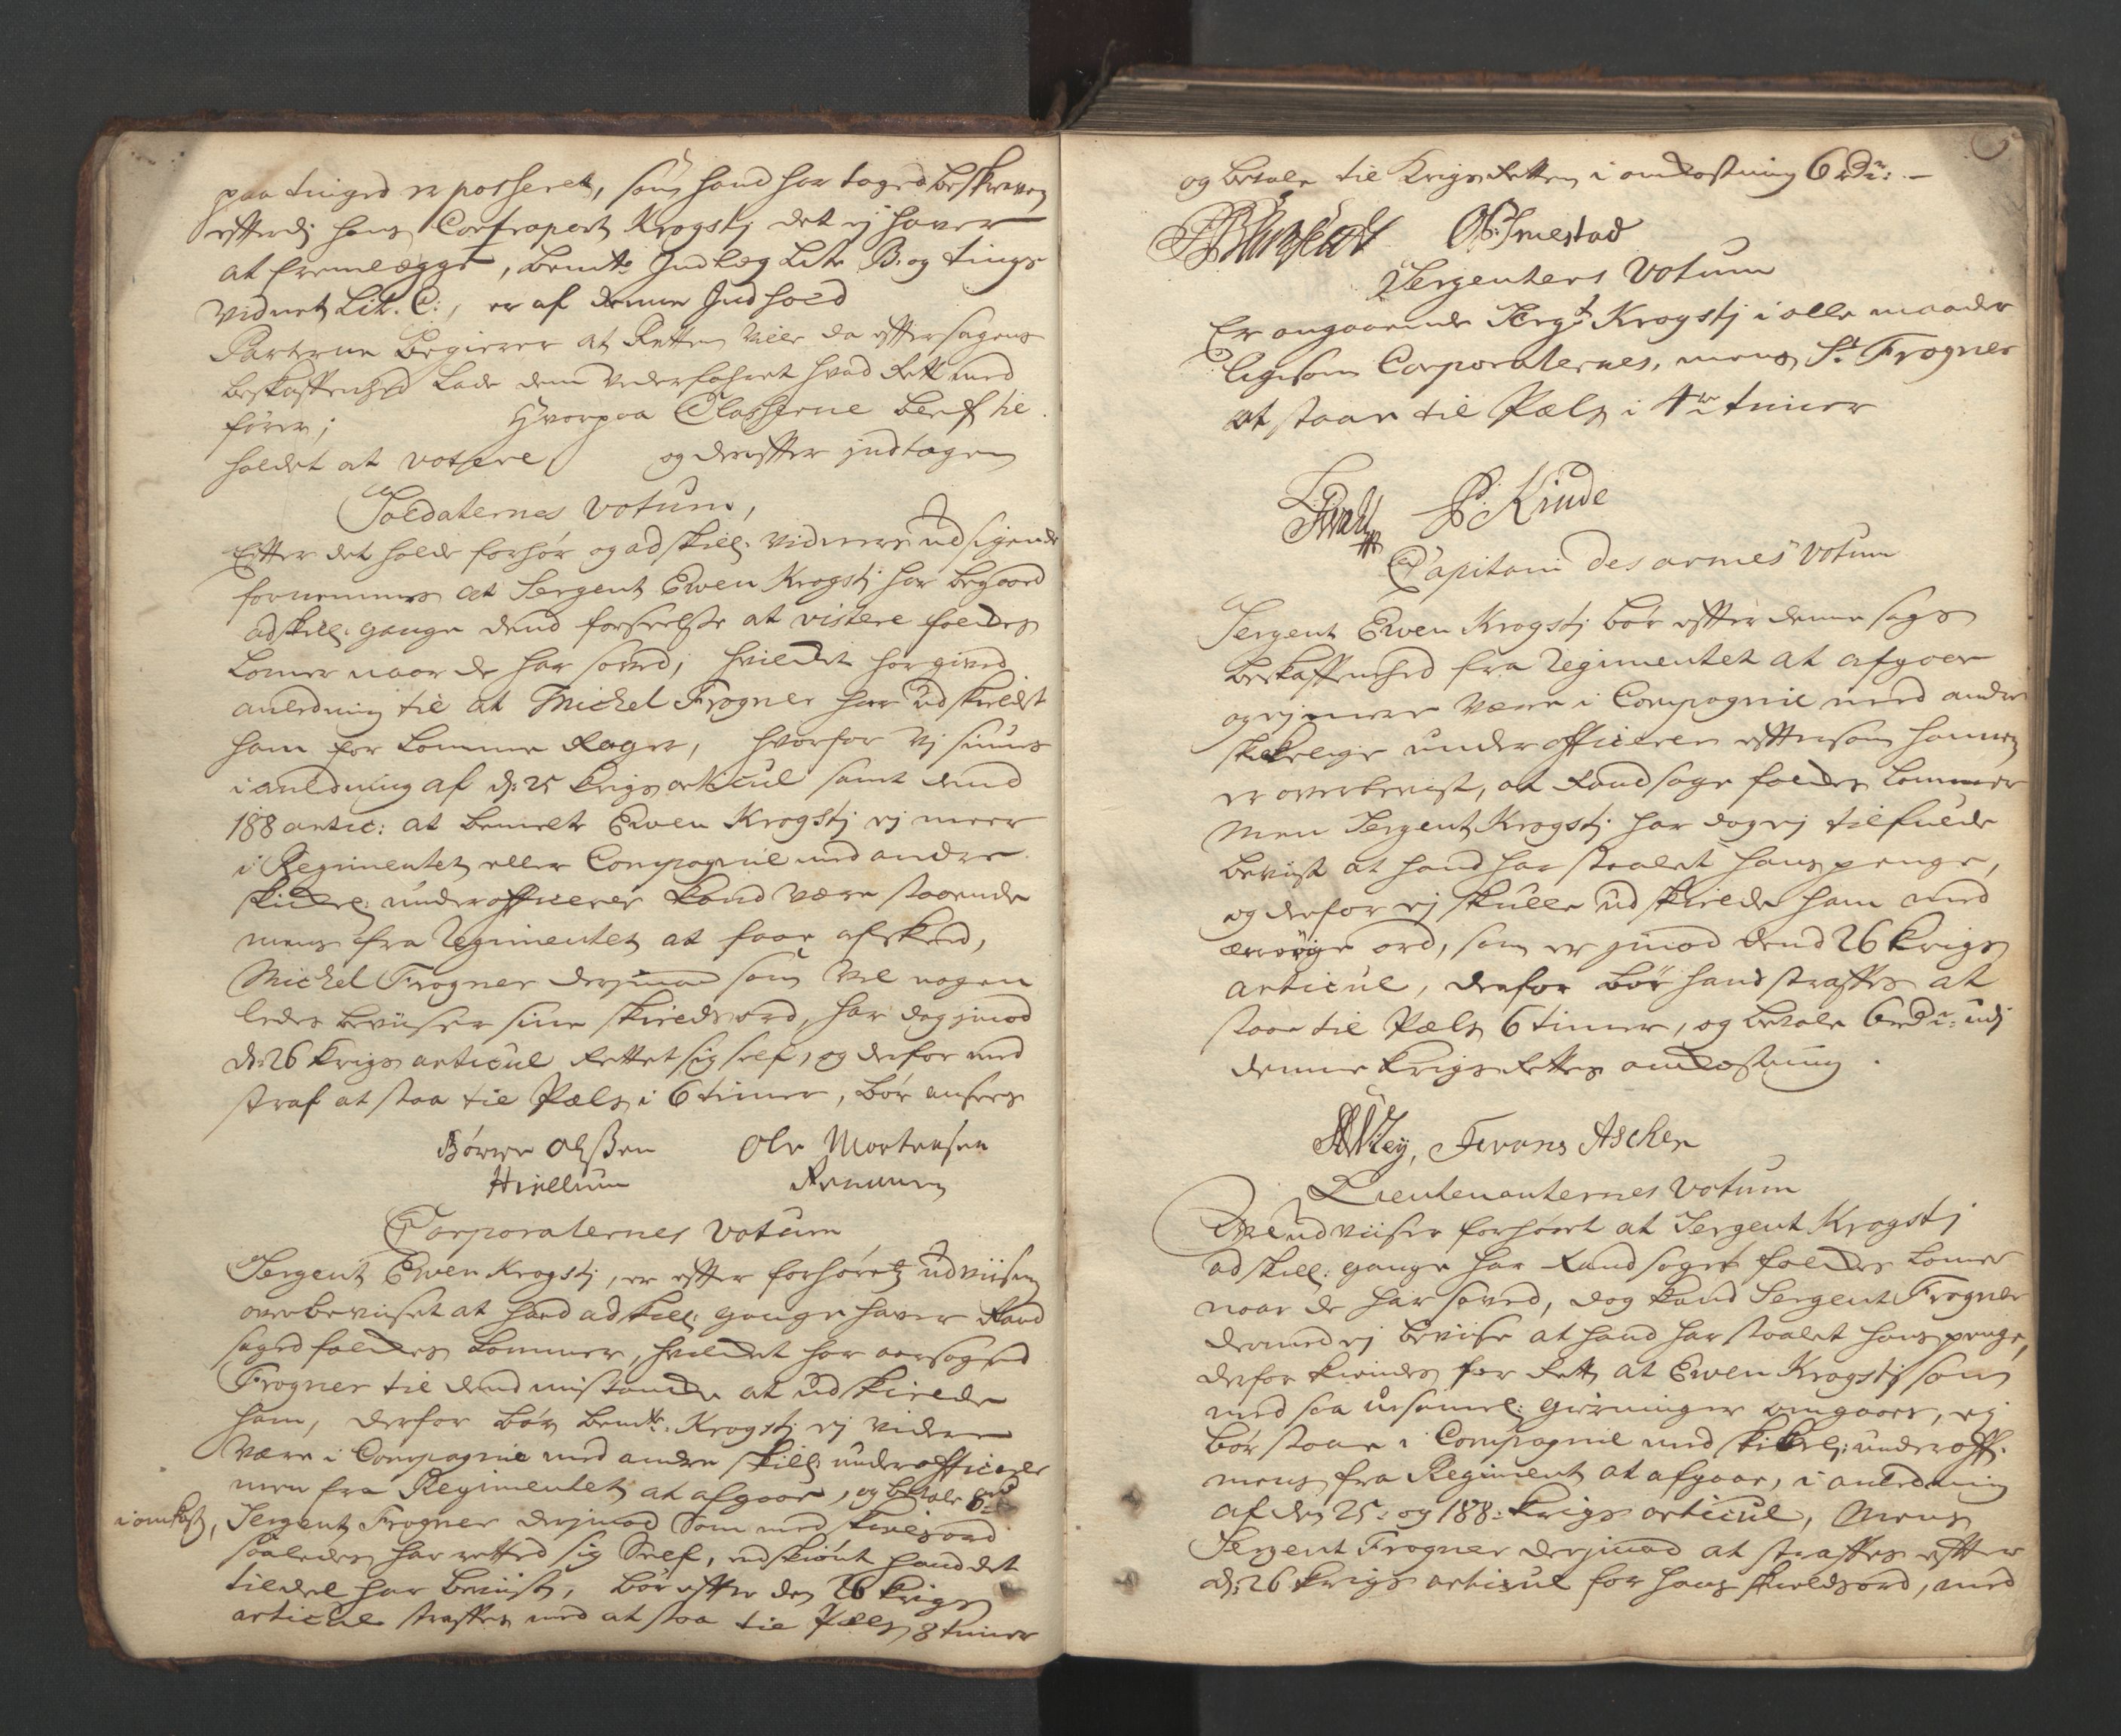 paa tinged er passeret, som hand har taged beskreven
efterdj hans Contrapart Krogstj det ej haver
at fremlægge, bemte Indlæg Litr B. og tings
vidnet Lit. C:, er af denne Indhold
Parterne begierer at Retten ville da efter sagens
beskaffenhed lade dem vederfahret hvad Rett med
fører; Hvorpaa Classerne blef til
holdet at votere og derefter indtagen
Soldaternes votum,
Efter det holdte forhør og adskill: vidners udsigende
fornemmes at Sergent Ewen Krogstj har begaaed
adskill: gange dend forseelse at visitere folckes
Lomer naar de har soved; hvilcket har gived
anledning til at Michel Frogner har udskieldt
ham for Lomme Rager, hvorfor vj siunes
i anledning af d: 25 krigs articul samt dend
188 artic: at bemelte Ewen Krogstj ej meer
i Regimentet eller Compagnie med andre
skickel: underofficerer kand være staaende
mens fra Regimentet at faae afskeed,
Michel Frogner derjmod som vel nogen
ledes beviiser sine skieldsord, har dog jmod
d: 26 krigs articul Rettet sig self, og derfor med
straf at staa til Pæls i 6 timer, bør ansees
Børre Olssen Ole Mortensen
Hiellum Remmen
Corporalernes votum
Sergent Ewen Krogstj, er efter forhørets udviisen
overbeviiset at hand adskill: gange haver Rand
saged folckes Lommer, hvilcket har aarsaged
Frogner til dend mistancke at udskielde
ham, derfor bør bemte: Krogstj ej videre
være i Compagnie med andre skill: underofficerer
men fra Regimentet at afgaae, og betale 6 rd
i omkost, Sergent Frogner derjmod som med skieldsord
saaledes har retted sig Self, endskiønt hand det
tildeel har beviist, bør efter den 26 krigs
articul straffes med at staa til Pæls 8 timer
og betale til Krigs Retten i omkostning 6 Rdr: –
OP: Smestad
Sergenters Votum
Er angaaende Sergt Krogstj i alle maader
ligesom Corporalernes, mens St. Frogner
at staae til Pæls i 4re timer
P: Kinde
Capitain des armes votum
Sergent Ewen Krogstj bør efter denne sags
beskaffenhed fra Regimentet at afgaae
og ej meere være i Compagnie med andre
skickelige underofficerer eftersom hannem
er overbeviist, at Randsage folckes Lommer
Men Sergent Krogstj har dog ej tilfulde
beviist at hand har staalet hans penge,
og derfor ej skulle udskielde ham med
ærrørige ord, som er jmod dend 26 krigs
articul, derfor bør hand straffes at
staae til Pæls 6 timer, og betale 6 rdr: udj
denne krigs Rettes omkostning.
Frans Ascher
Lieutenanternes votum
Vel udviiser forhøret at Sergent Krogstj
adskill: gange har Randsaget folckes Lomer
naar de har soved, dog kand Sergent Frogner
dermed ej beviise at hand har staalet hans penge,
derfor kiendes for Rett, at Ewen Krogstj som
med saa usømel: gierninger omgaaes, ej
bør staae i Compagnie med skickel: underoff:
mens fra Regiment at afgaae, i anledning
af den 25: og 188: krigs articul, Mens
Sergent Frogner derjmod at straffes efter
d: 26 krigs articul for hans skieldsord, med